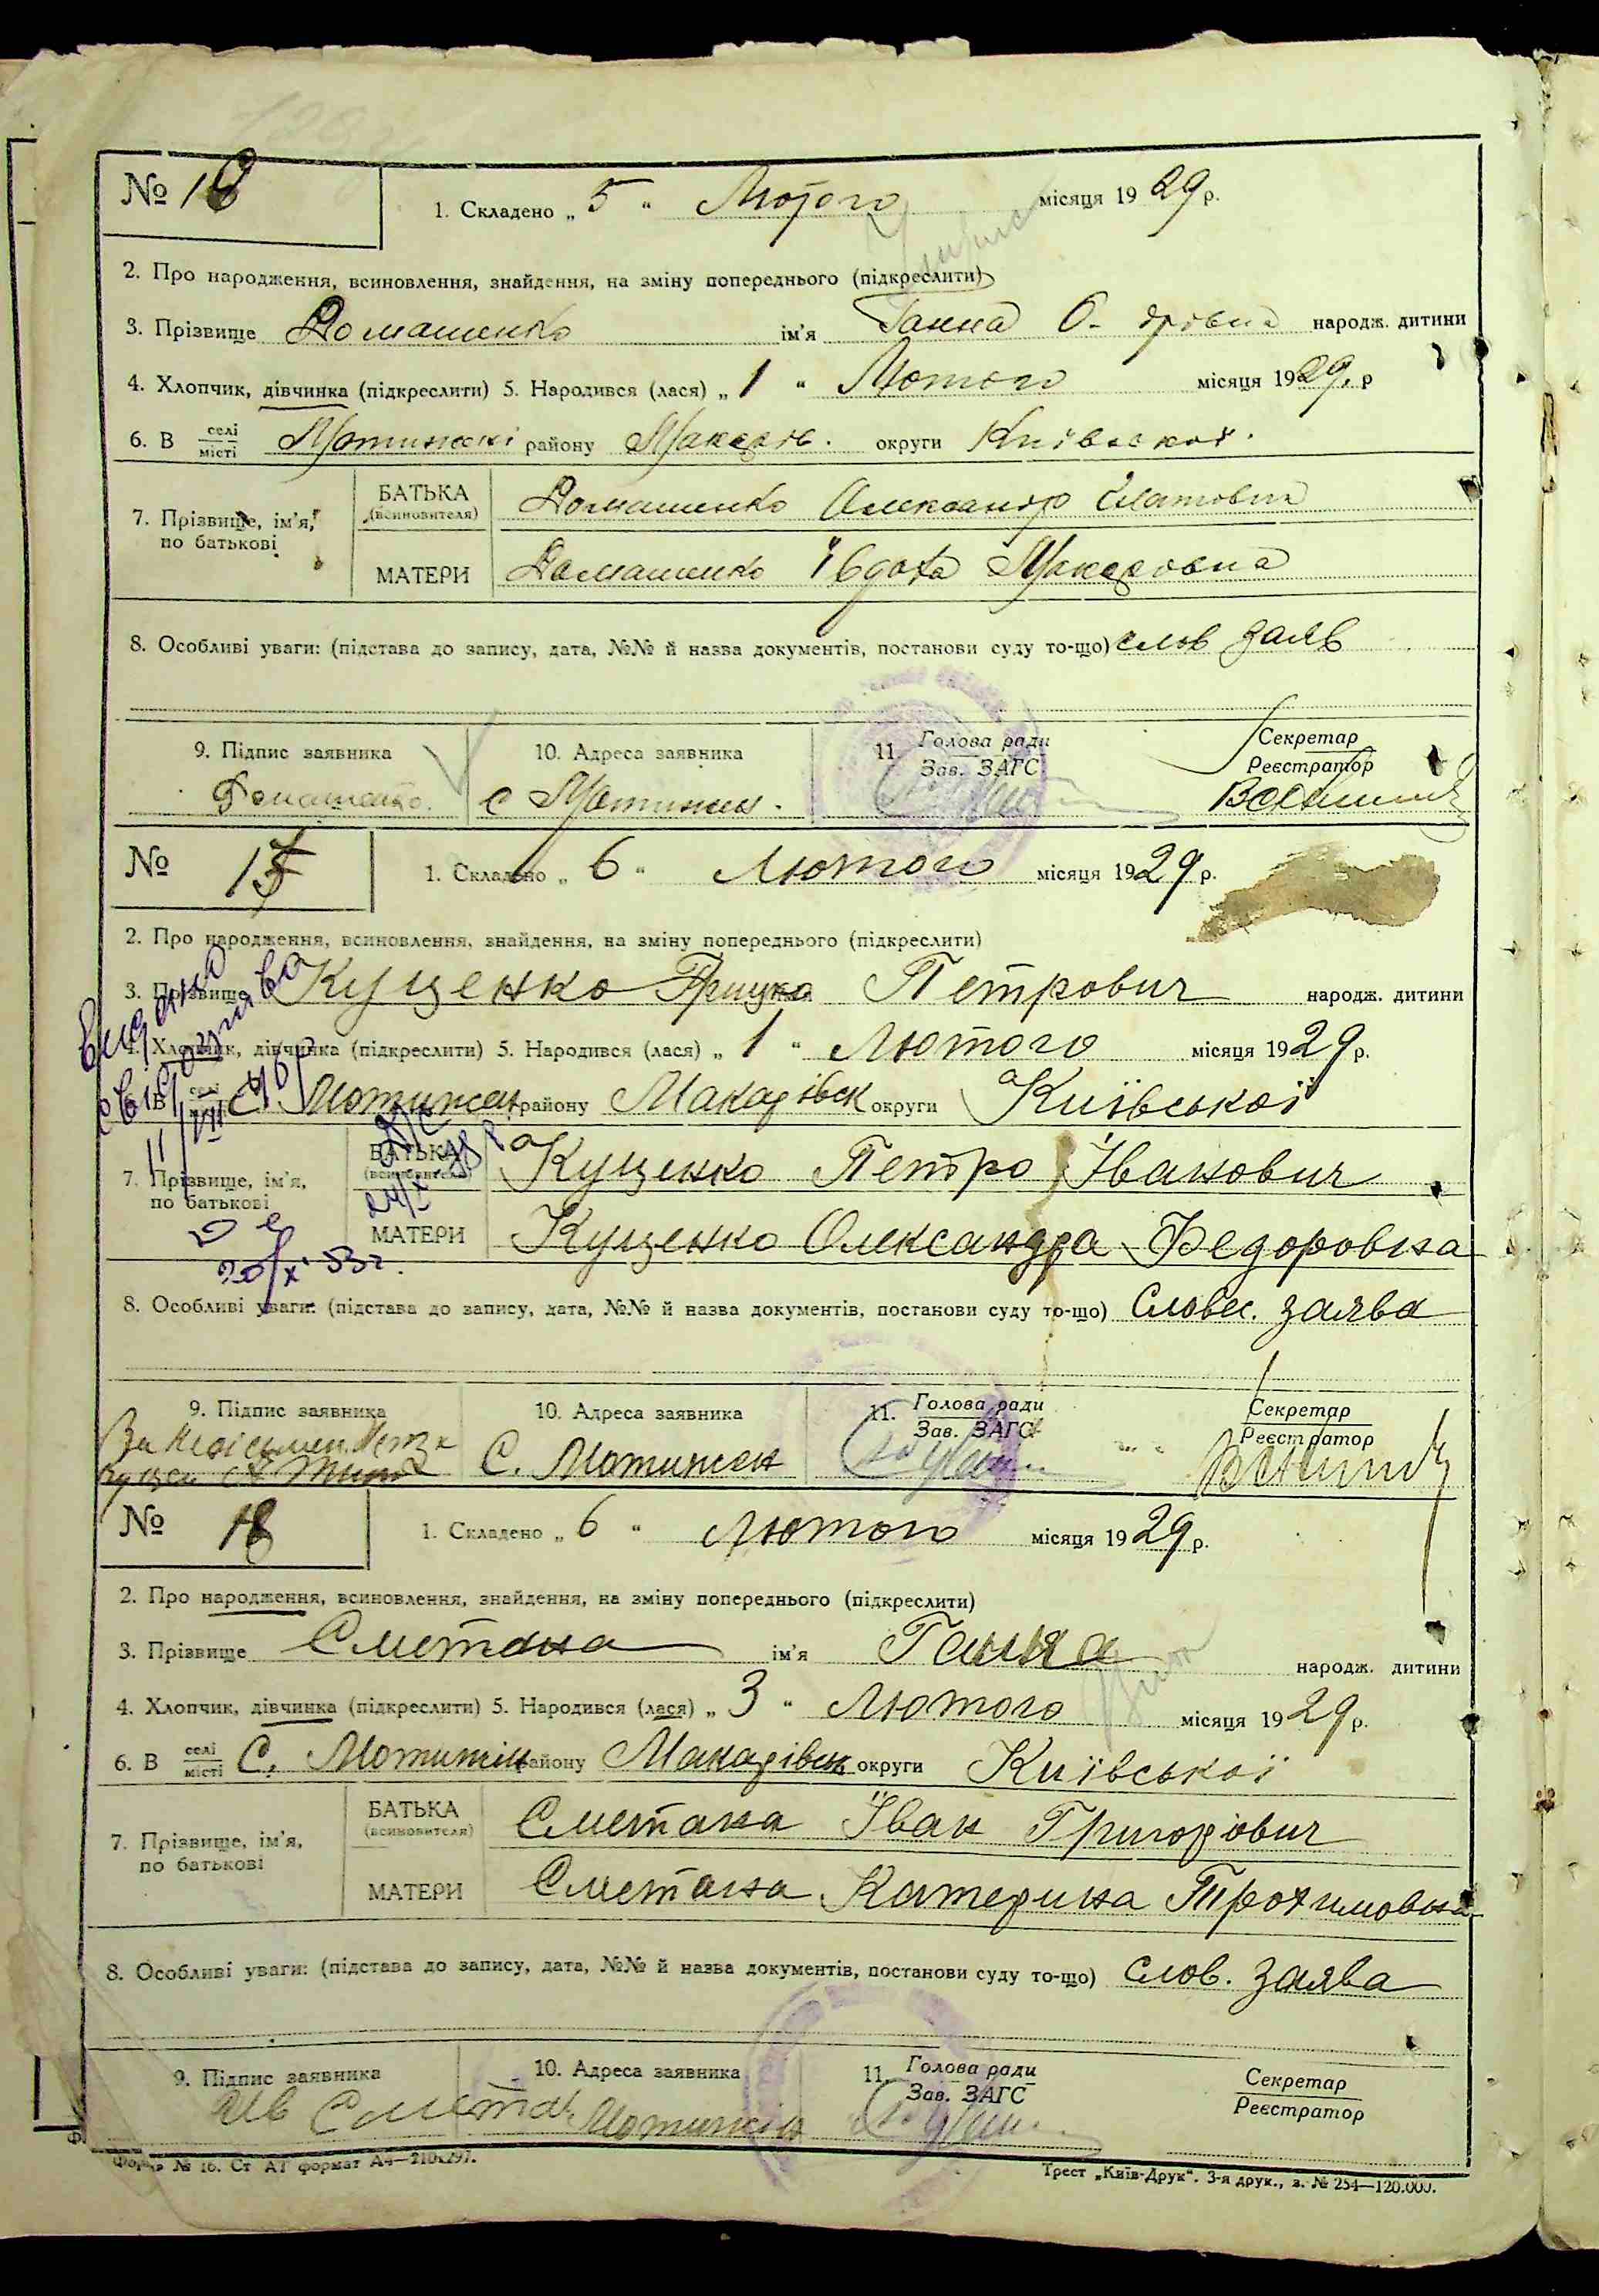 № 16
1. Складено „ 5 “ Лютого місяця 1929 р.
2. Про народження, всиновлення, знайдення, на зміну попереднього (підкреслити)
3. Прізвище Домашенко ім'я Ганна народж. дитини
4. Хлопчик, дівчинка (підкреслити) 5. Народився (лася) „ 1 “ Лютого місяця 1929. р
6. В селі місті Мотижені району Макарів. округи Київської.
7. Прізвище, ім'я, по батькові
БАТЬКА (всиновителя) Домашенко Олександр
МАТЕРИ Домашенко Ївдоха Макаровна
8. Особливі уваги: (підстава до запису, дата, №№ й назва документів, постанови суду то-що) слов заяв
9. Підпис заявника 10. Адреса заявника 11. Голова ради Зав. ЗАГС Секретар Реєстратор
Домашенко. с Мотижен.
№ 17
1. Складено „ 6 “ Лютого місяця 1929 р.
2. Про народження, всиновлення, знайдення, на зміну попереднього (підкреслити)
3. Прізвище Куценко Грицко Петрович народж. дитини
4. Хлопчик, дівчинка (підкреслити) 5. Народився (лася) „ 1 “ Лютого місяця 1929 р.
6. В селі місті С. Мотижен району Макарівськ округи Київської
7. Прізвище, ім'я, по батькові
БАТЬКА (всиновителя) Куценко Петро Іванович
МАТЕРИ Куценко Олександра Федоровна
20/X 53г.
8. Особливі уваги: (підстава до запису, дата, №№ й назва документів, постанови суду то-що) Словес. заява
9. Підпис заявника 10. Адреса заявника 11. Голова ради Зав. ЗАГС Секретар Реєстратор
С. Мотижен
№ 18
1. Складено „ 6 “ Лютого місяця 1929 р.
2. Про народження, всиновлення, знайдення, на зміну попереднього (підкреслити)
3. Прізвище Сметана ім'я Ганна народж. дитини
4. Хлопчик, дівчинка (підкреслити) 5. Народився (лася) „ 3 “ Лютого місяця 1929 р.
6. В селі місті С. Мотижін району Макарівськ округи Київської
7. Прізвище, ім'я, по батькові
БАТЬКА (всиновителя) Сметана Їван Григорович
МАТЕРИ Сметана Катерина Трохимовна
8. Особливі уваги: (підстава до запису, дата, №№ й назва документів, постанови суду то-що) слов. заява
9. Підпис заявника 10. Адреса заявника 11. Голова ради Зав. ЗАГС Секретар Реєстратор
Ив Сметана Мотижін
Форма № 16. Ст АТ формат А4—210х297.
Трест „Київ-Друк“. 3-я друк., з. № 254—120.000.